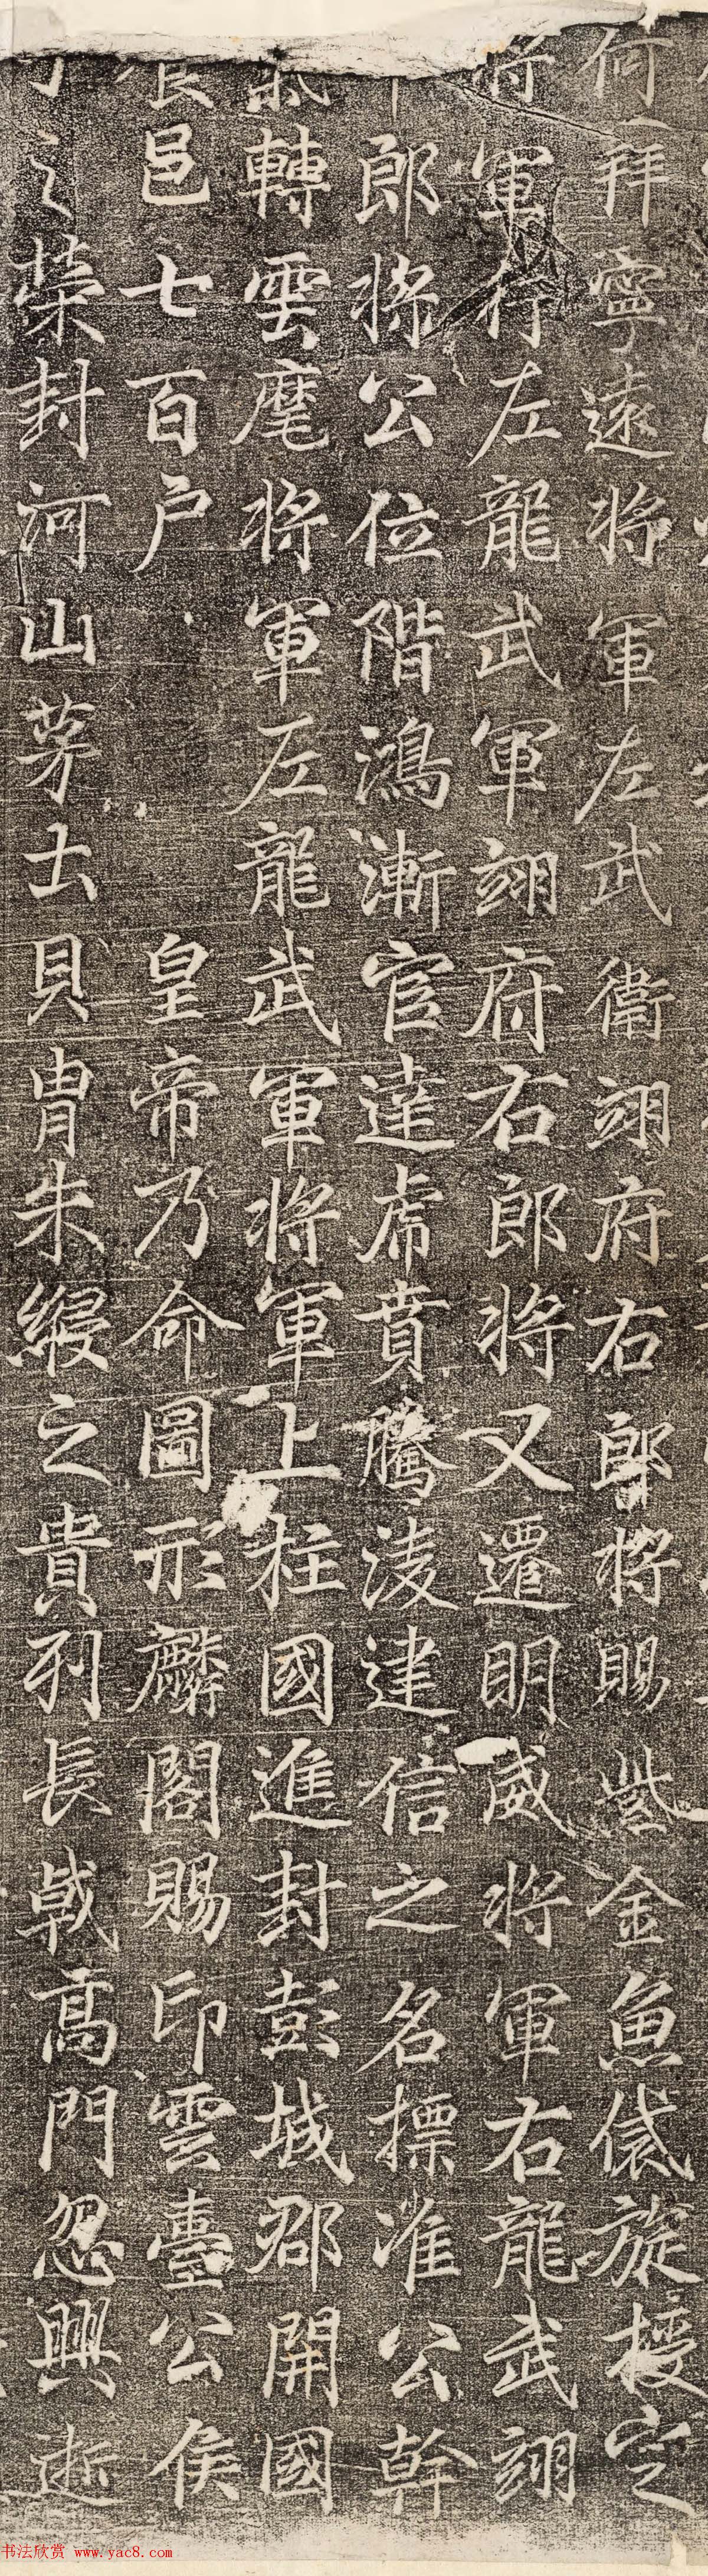 何拜寧遠將軍左武衛翊府右郎將賜紫金魚袋旋授定
將軍行左龍武軍翊府右郎將又遷明威將軍右龍武翊
郎將公位階鴻漸官達虎賁騰淩建信之名摽淮公幹
氣轉雲麾將軍左龍武軍將軍上柱國進封彭城郡開國
食邑七百户 皇帝乃命圖形麟閣賜印雲臺公侯
之榮封河山茅土貝胄朱綬之貴列長戟高門忽興逝
书法欣赏 www.yac8.com